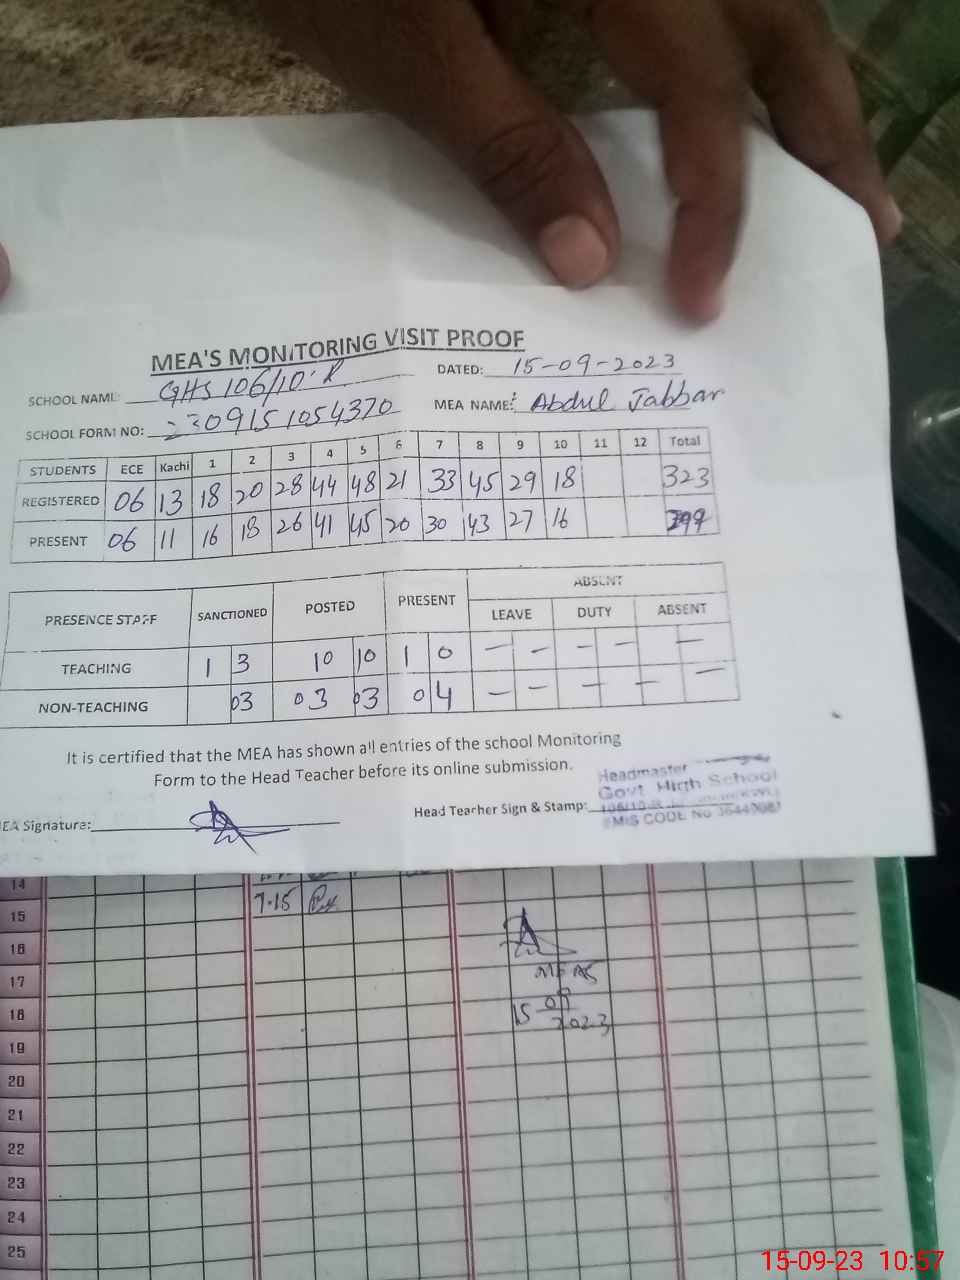 MEA'S MONITORING VISIT PROOF
SCHOOL NAME: GHS 106/10.R DATED: 15-09-2023
SCHOOL FORM NO: 309151054370 MEA NAME: Abdul Jabbar
STUDENTS ECE Kachi 1 2 3 4 5 6 7 8 9 10 11 12 Total
REGISTERED 06 13 18 20 28 44 48 21 33 45 29 18 323
PRESENT 06 11 16 18 26 41 45 20 30 43 27 16
ABSENT
PRESENCE STAFF SANCTIONED POSTED PRESENT LEAVE DUTY ABSENT
TEACHING 1 3 10 10 1 0 - - - - -
NON-TEACHING 03 03 03 04 - - - - -
It is certified that the MEA has shown all entries of the school Monitoring
Form to the Head Teacher before its online submission.
MEA Signature: Head Teacher Sign & Stamp:
Headmaster
Govt. High School
EMIS CODE No
14
15 7.15
16
17
18 15 09 2023
19
20
21
22
23
24
25
15-09-23 10:57